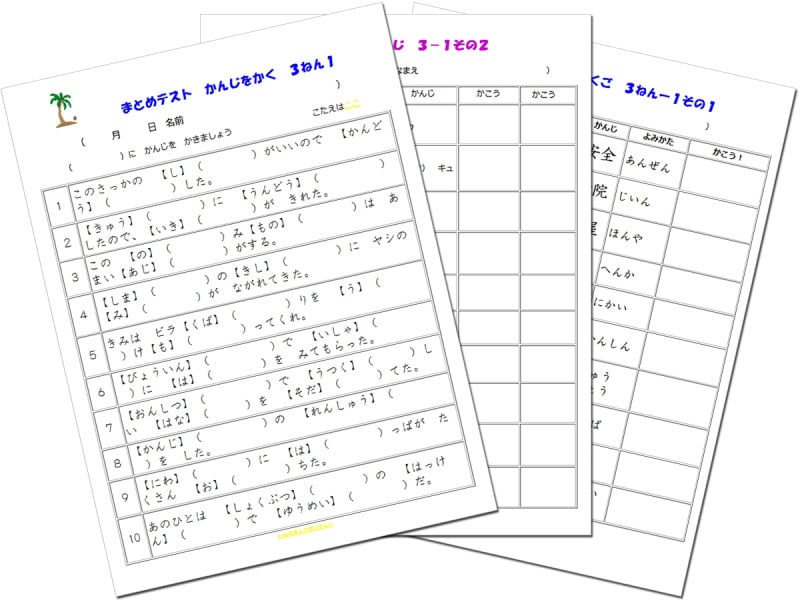 まとめテスト　かんじをかく　3ねん1
(　　月　　日　名前　　　　　　　　)
こたえはここ
(　　　　)に　かんじを　かきましょう
1 このさっかの　【し】(　　　　)がいいので　【かんど
う】(　　　　)した。
2 【きゅう】(　　　　)に　【うんどう】(　　　　)
したので、【いき】(　　　　)が　きれた。
3 この　【の】(　　　　)み【もの】(　　　　)は　あ
まい【あじ】(　　　　)がする。
4 【しま】(　　　　)の【きし】(　　　　)に　ヤシの
【み】(　　　　)が　ながれてきた。
5 きみは　ビラ【くば】(　　　　)りを　【う】(　　
　　)け【も】(　　　　)ってくれ。
6 【びょういん】(　　　　)で　【いしゃ】(　　
　　)に　【は】(　　　　)を　みてもらった。
7 【おんしつ】(　　　　)で　【うつく】(　　　　)し
い　【はな】(　　　　)を　【そだ】(　　　　)てた。
8 【かんじ】(　　　　)の　【れんしゅう】(　　
　　)を　した。
9 【にわ】(　　　　)に　【は】(　　　　)っぱが　た
くさん　【お】(　　　　)ちた。
10 あのひとは　【しょくぶつ】(　　　　)の　【はっけ
ん】(　　　　)で　【ゆうめい】(　　　　)だ。
じ　3－1その2
なまえ　　　　　　　　)
かんじ　かこう　かこう
)　キュ
くご　3ねんー1その1
)
かんじ　よみかた　かこう！
安全　あんぜん
院　じいん
屋　ほんや
へんか
にかい
かんしん
ゅう
う
ば